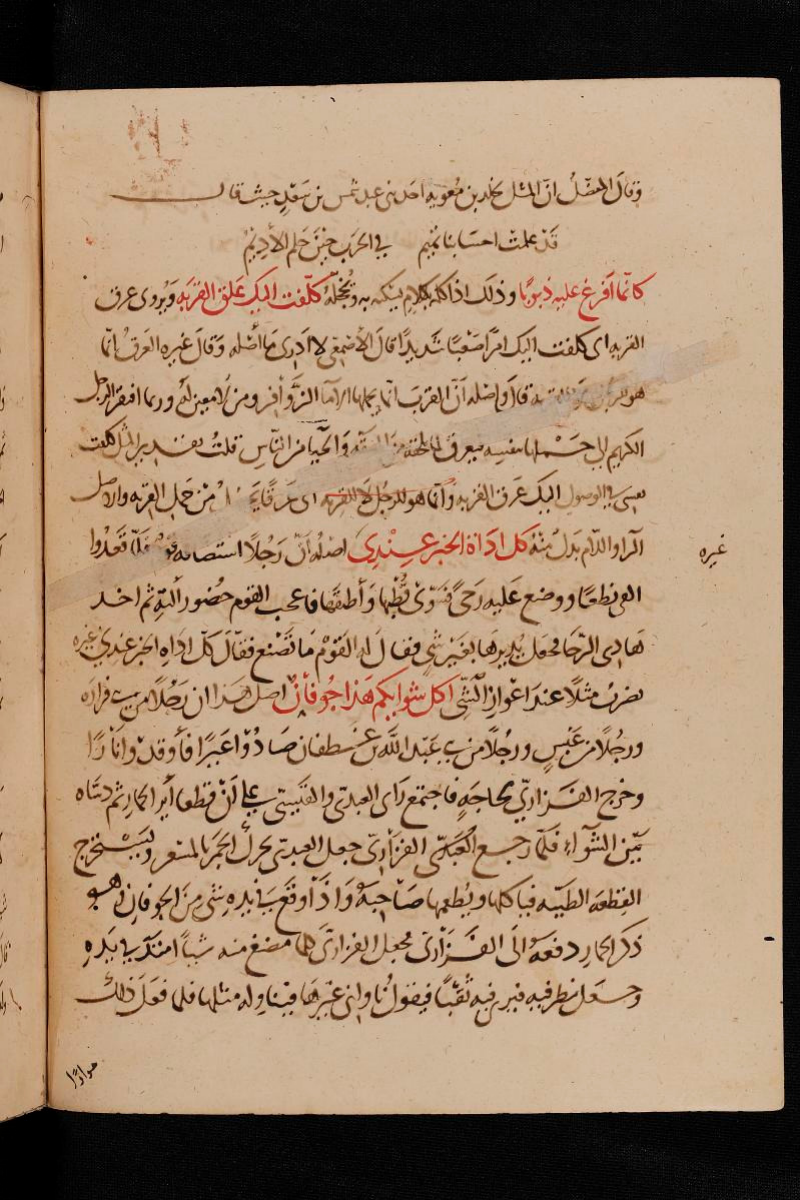 وقال المفضل ان المثل لخالد بن معوية احد بنى عبد شمس بن سعد حيث قال
قد علمت احسابنا تميم في الحرب حين حلم الأديم
كانما افرغ عليه ذنوبا وذلك اذا كلمه بكلام يسكته به ويخجله كلفت اليك علق القربه ويروى عرق
القربه اى كلفت اليك امرا صعبا شديدا قال الأصمعى لا ادرى ما أصله وقال غيره العرق انما
هو للرجل واصله أن القرب انما يحملها الاماء الزوافر ومن لا معين له وربما افتقر الرجل
الكريم الى حملها بنفسه فيعرق لما يلحقه من والحيا من الناس قلت تقدير المثل كلفت
نفسى في الوصول اليك عرق القربه وانما هو للرجل لا للقربه اى من حمل القربه والاصل
الراء واللام بدل منه كل اداة الخبز عندي اصله ان رجلا استضافه قوم فلما قعدوا
غيره
القى نطعا ووضع عليه رحى فسوى قطبها وأطبقها فاعجب القوم حضور آلته ثم اخذ
هادى الرحا فجعل يديرها بغير شى فقال له القوم ما تصنع فقال كل اداه الخبز عندي غيره
يضرب مثلا عند اعواز الشى اكل شوائكم هذا جوفان اصل هذا ان رجلا من بنى فزاره
ورجلا من عبس ورجلا من بنى عبد الله بن غطفان صادوا عيرا فأوقدوا نارا
وخرج الفزاري لحاجه فاجتمع رأى العبدى والعبسى على ان قطعا أير الحمار ثم دساه
بين الشواء فلما رجع الفزارى جعل العبدى يحرك الجمر بالمسعر ويستخرج
القطعه الطيبه فياكلها ويطعمها صاحبه واذا وقع في يده شى من الجوفان وهو
ذكر الحمار دفعه الى الفزارى فجعل الفزارى كلما مضغ منه شيا امتد في يده
وجعل ينظر فيه فيرى فيه ثقبا فيقول ناولنى غيرها فيناوله مثلها فلما فعل ذلك
مرارا